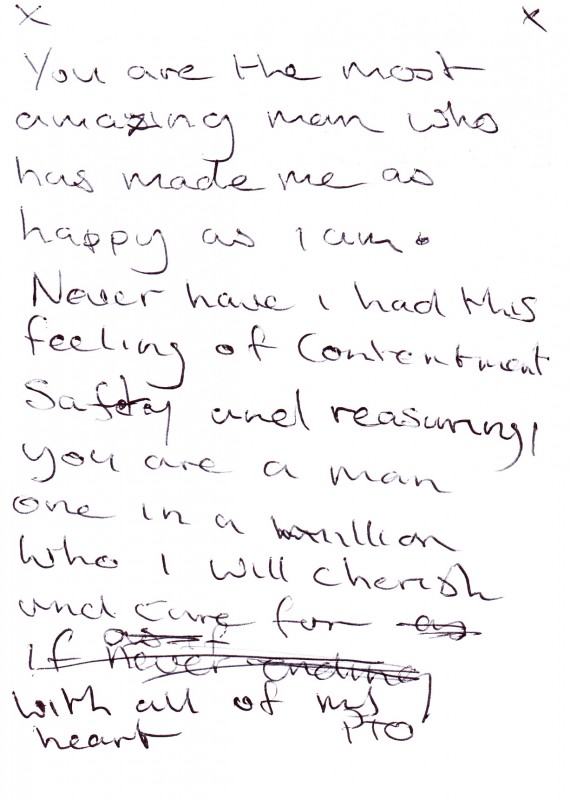 x x
You are the most
amazing man who
has made me as
happy as I am.
Never have I had this
feeling of Contentment
Safety and reasuring,
you are a man
one in a million
Who I will cherish
and care for as
as if
if never ending
with all of my
heart PTO